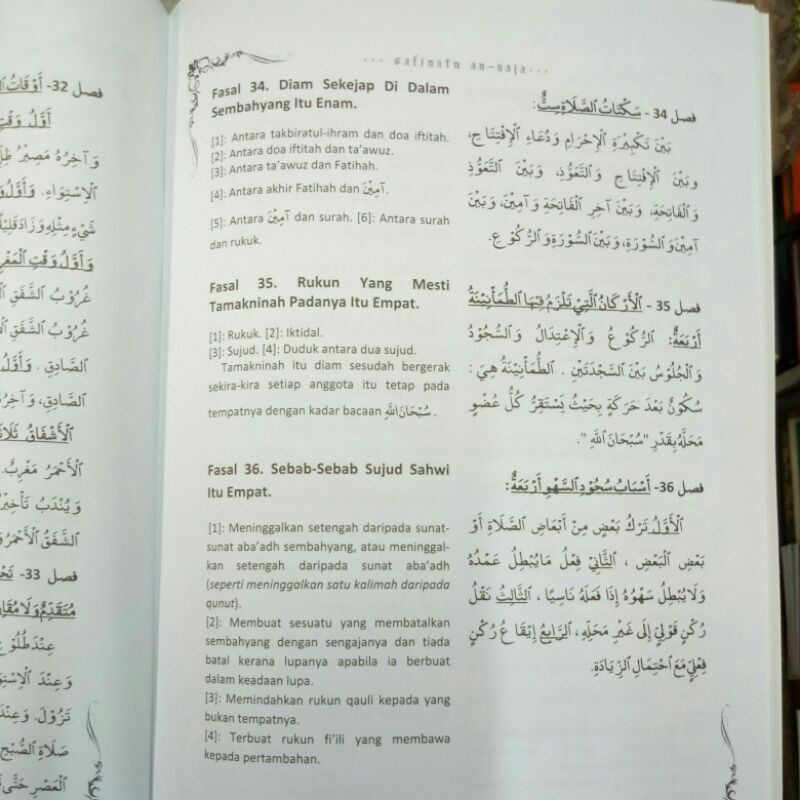 --- safinatu an-naja---
Fasal 34. Diam Sekejap Di Dalam
Sembahyang Itu Enam.
[1]: Antara takbiratul-ihram dan doa iftitah.
[2]: Antara doa iftitah dan ta'awuz.
[3]: Antara ta'awuz dan Fatihah.
[4]: Antara akhir Fatihah dan آمِيْنَ.
[5]: Antara آمِيْنَ dan surah. [6]: Antara surah
dan rukuk.
Fasal 35. Rukun Yang Mesti
Tamakninah Padanya Itu Empat.
[1]: Rukuk. [2]: Iktidal.
[3]: Sujud. [4]: Duduk antara dua sujud.
Tamakninah itu diam sesudah bergerak
sekira-kira setiap anggota itu tetap pada
tempatnya dengan kadar bacaan سُبْحَانَ اللهِ .
Fasal 36. Sebab-Sebab Sujud Sahwi
Itu Empat.
[1]: Meninggalkan setengah daripada sunat-
sunat aba'adh sembahyang, atau meninggal-
kan setengah daripada sunat aba'adh
(seperti meninggalkan satu kalimah daripada
qunut).
[2]: Membuat sesuatu yang membatalkan
sembahyang dengan sengajanya dan tiada
batal kerana lupanya apabila ia berbuat
dalam keadaan lupa.
[3]: Memindahkan rukun qauli kepada yang
bukan tempatnya.
[4]: Terbuat rukun fi'ili yang membawa
kepada pertambahan.
فصل 34 - سَكَتَاتُ الصَّلَاةِ سِتٌّ:
بَيْنَ تَكْبِيْرَةِ الْإِحْرَامِ وَدُعَاءِ الْإِفْتِتَاحِ،
وبَيْنَ الْإِفْتِتَاحِ وَالتَّعَوُّذِ، وَبَيْنَ التَّعَوُّذِ
وَالْفَاتِحَةِ، وَبَيْنَ آخِرِ الْفَاتِحَةِ وَآمِيْنَ، وَبَيْنَ
آمِيْنَ وَالسُّوْرَةِ، وَبَيْنَ السُّوْرَةِ وَالرُّكُوْعِ.
فصل 35 - الْأَرْكَانُ الَّتِيْ تَلْزَمُ فِيْهَا الطُّمَأْنِيْنَةُ
أَرْبَعَةٌ: الرُّكُوْعُ وَالْإِعْتِدَالُ وَالسُّجُوْدُ
وَالْجُلُوْسُ بَيْنَ السَّجْدَتَيْنِ . الطُّمَأْنِيْنَةُ هِيَ :
سُكُوْنٌ بَعْدَ حَرَكَةٍ بِحَيْثُ يَسْتَقِرُّ كُلُّ عُضْوٍ
مَحَلَّهُ بِقَدْرِ "سُبْحَانَ اللهِ ".
فصل 36- أَسْبَابُ سُجُوْدِ السَّهْوِ أَرْبَعَةٌ:
الْأَوَّلُ تَرْكُ بَعْضٍ مِنْ أَبْعَاضِ الصَّلَاةِ أَوْ
بَعْضِ الْبَعْضِ ، الثَّانِيْ فِعْلُ مَا يُبْطِلُ عَمْدُهُ
وَلَا يُبْطِلُ سَهْوُهُ إِذَا فَعَلَهُ نَاسِيًا ، الثَّالِثُ نَقْلُ
رُكْنٍ قَوْلِيٍّ إِلَى غَيْرِ مَحَلِّهِ ، الرَّابِعُ إِيْقَاعُ رُكْنٍ
فِعْلِيٍّ مَعَ احْتِمَالِ الزِّيَادَةِ.
فصل 32- أَوْقَاتُ
أَوَّلُ وَقْتِ
وَآخِرُهُ مَصِيْرُ
الْإِسْتِوَاءِ. وَأَوَّلُ
شَيْءٍ مِثْلِهِ وَزَادَ قَلِيْلًا
وَأَوَّلُ وَقْتِ الْمَغْرِبِ
غُرُوْبُ الشَّفَقِ
غُرُوْبُ الشَّفَقِ
الصَّادِقِ . وَأَوَّلُ
الصَّادِقِ، وَآخِرُهُ
الْأَشْفَاقُ ثَلَاثَةٌ
الْأَحْمَرُ مَغْرِبٌ.
وَيُنْدَبُ تَأْخِيْرُ
الشَّفَقُ الْأَحْمَرُ
فصل 33-
مُتَقَدِّمٌ وَلَا مُقَارِنٌ
عِنْدَ طُلُوْعِ
وَعِنْدَ الْإِسْتِوَاءِ
تَزُوْلَ. وَعِنْدَ
صَلَاةِ الصُّبْحِ
الْعَصْرِ حَتَّى